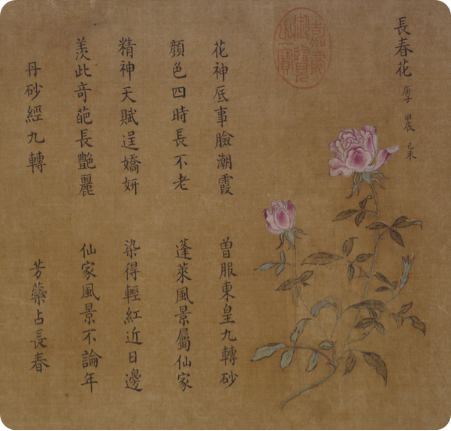 長春花
嘉慶御覽之寶
花神底事臉潮霞 曾服東皇九轉砂
顏色四時長不老 蓬萊風景屬仙家
精神天賦逞嬌妍 染得輕紅近日邊
羨此奇葩長艷麗 仙家風景不論年
丹砂經九轉 芳蘂占長春